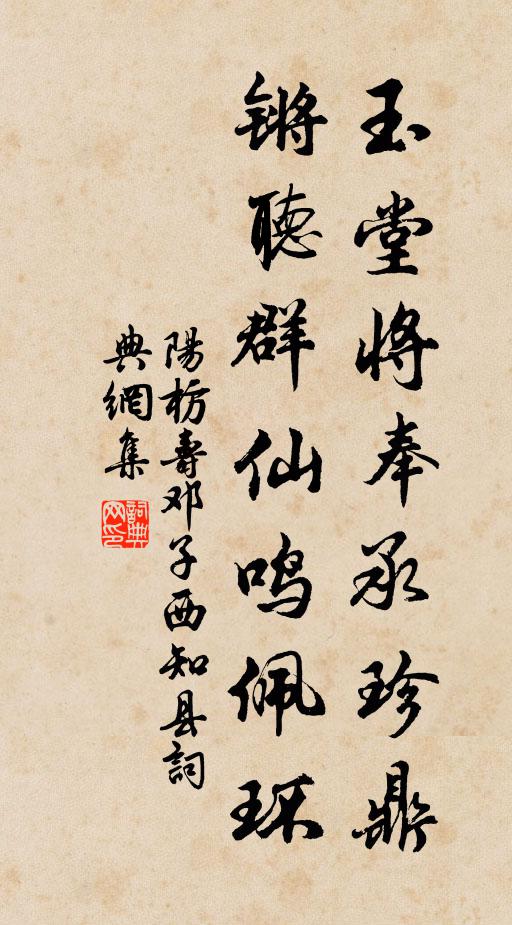 玉堂将奉承珍鼎
锵聽群仙鸣佩环
陽枋壽邓子西知县詞
典網集
詞典网印